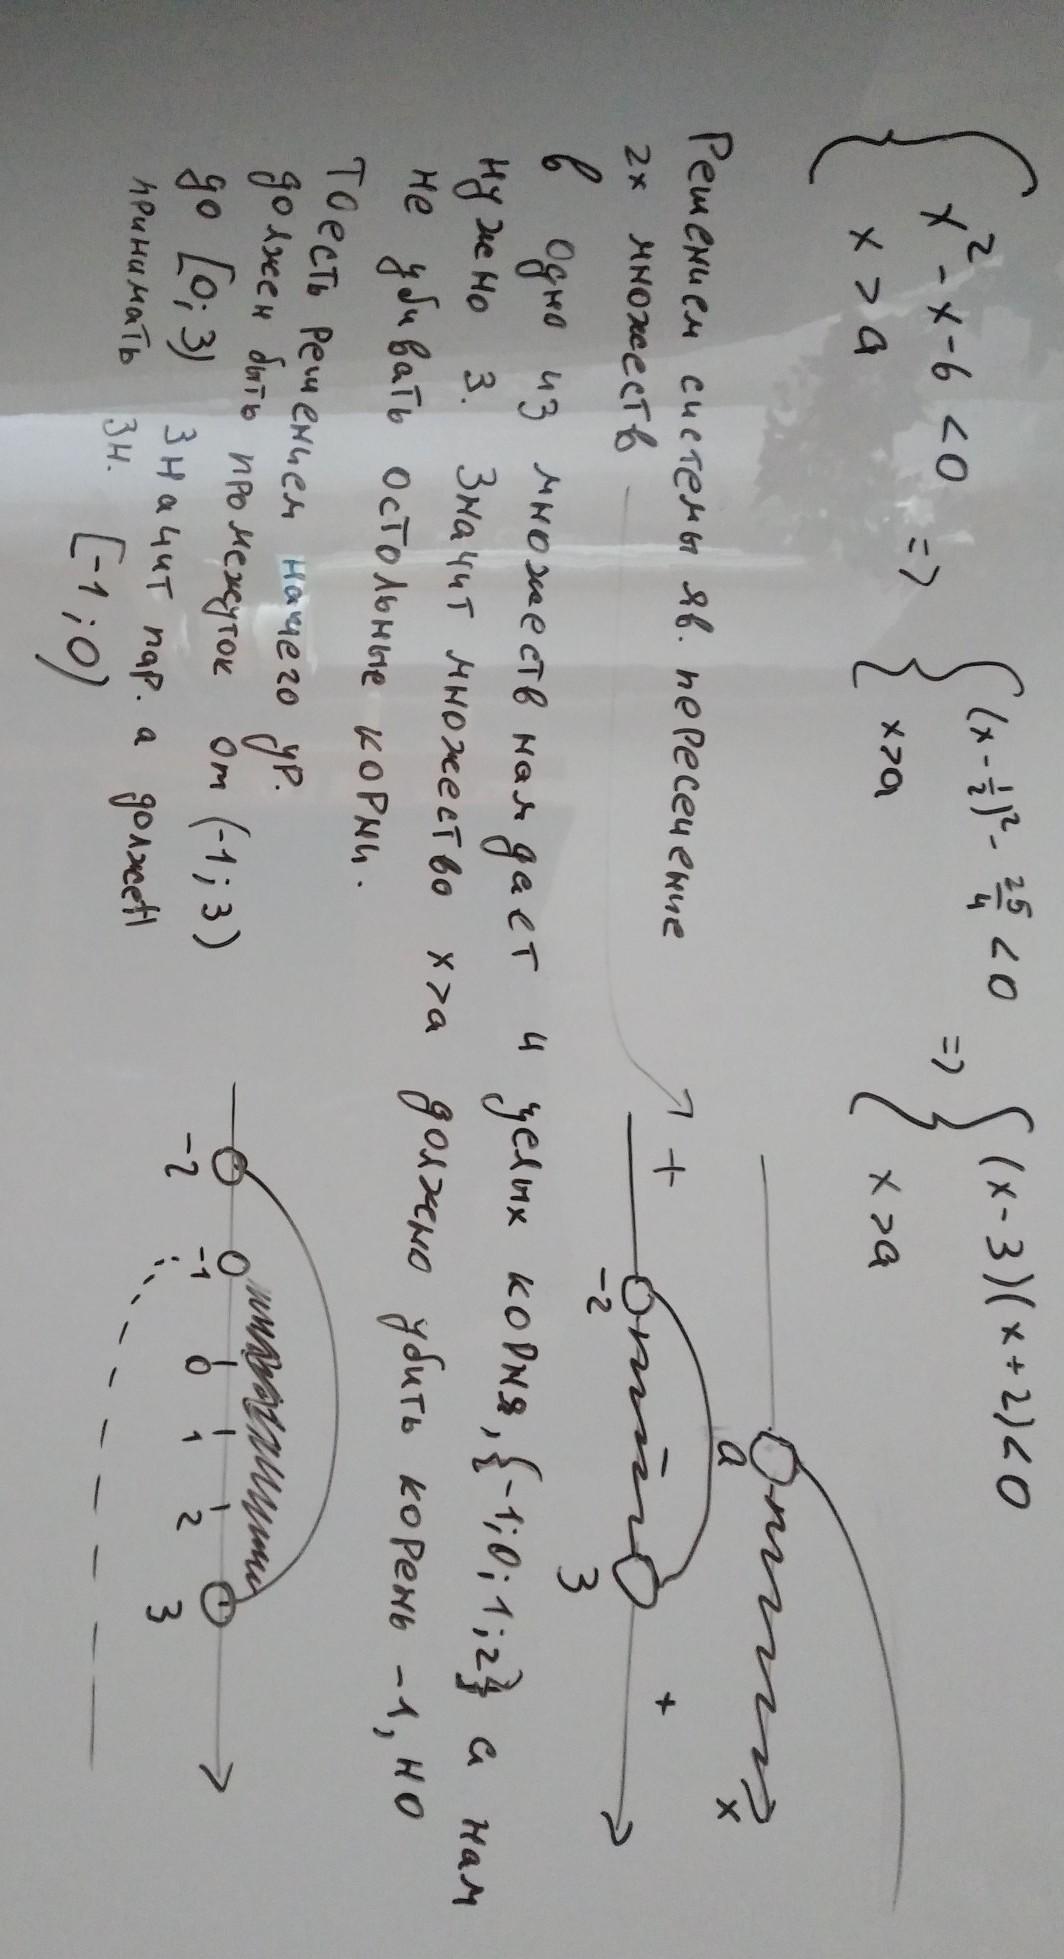 { x² - x - 6 < 0
x > a => { (x - 1/2)² - 25/4 < 0
x > a => { (x - 3)(x + 2) < 0
x > a
Решением системы яв. пересечение
2х множеств
a x
+ -2 - 3 +
В одно из множеств нам дает 4 целых корня, {-1; 0; 1; 2} а нам
нужно 3. Значит множество x>a должно убить корень -1, но
не убивать остольные корни.
Тоесть решением нашего ур.
должен быть промежуток от (-1; 3)
до [0; 3) Значит пар. a должен
принимать зн.
[-1; 0)
-2 -1 0 1 2 3